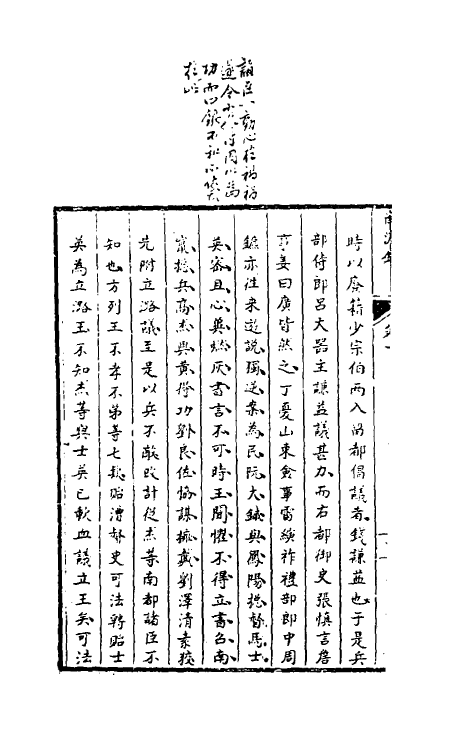 諸臣以動心於禍福
遂令小人得因以為
功而口銀不和亦送大
於此
時以廢籍少宗伯兩入留都倡議者錢謙益也于是兵
部侍郎呂大器主謙益議甚力而右都御史張慎言詹
事姜曰廣皆然之丁憂山東僉事雷縯祚禮部郎中周
鑣亦往來遊說獨逆案為民阮大鋮與鳳陽總督馬士
英密且心冀燃灰書言不可時王聞懼不得立書召南
竄總兵高杰與黃得功劉良佐協謀擁戴劉澤清素狡
先附立潞議至是以兵不敵改計從杰等南都諸臣不
知也方列王不孝不弟等七款貽漕督史可法轉貽士
英為立潞王不知杰等與士英已歃血議立王矣可法